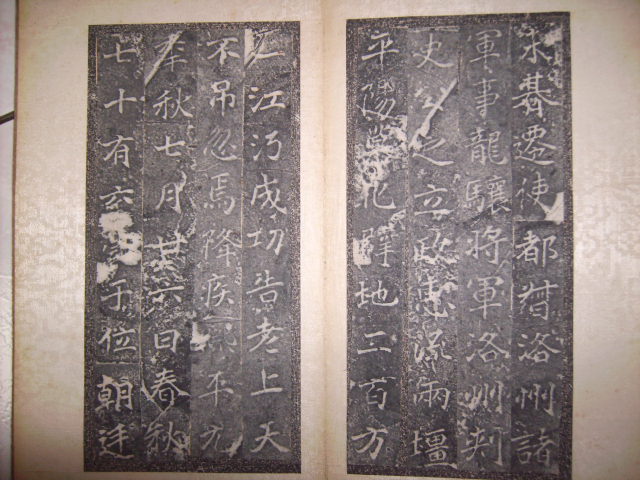 水朞遷使都督洛州諸
軍事龍驤將軍洛州刾
史公之立政惠流兩壃
平陽化辟地二百方
江沔成功告老上天
不吊忽焉降疾熙平元
年秋七月廿六日春秋
七十有六于位朝廷